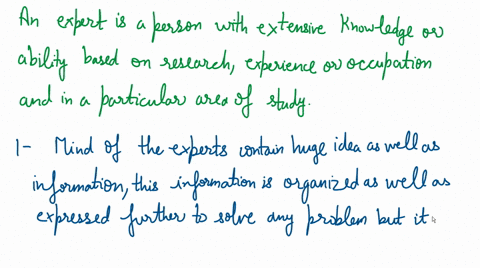 An expert is a person with extensive knowledge or
ability based on research, experience or occupation
and in a particular area of study.
1- Mind of the experts contain huge idea as well as
information, this information is organized as well as
expressed further to solve any problem but it